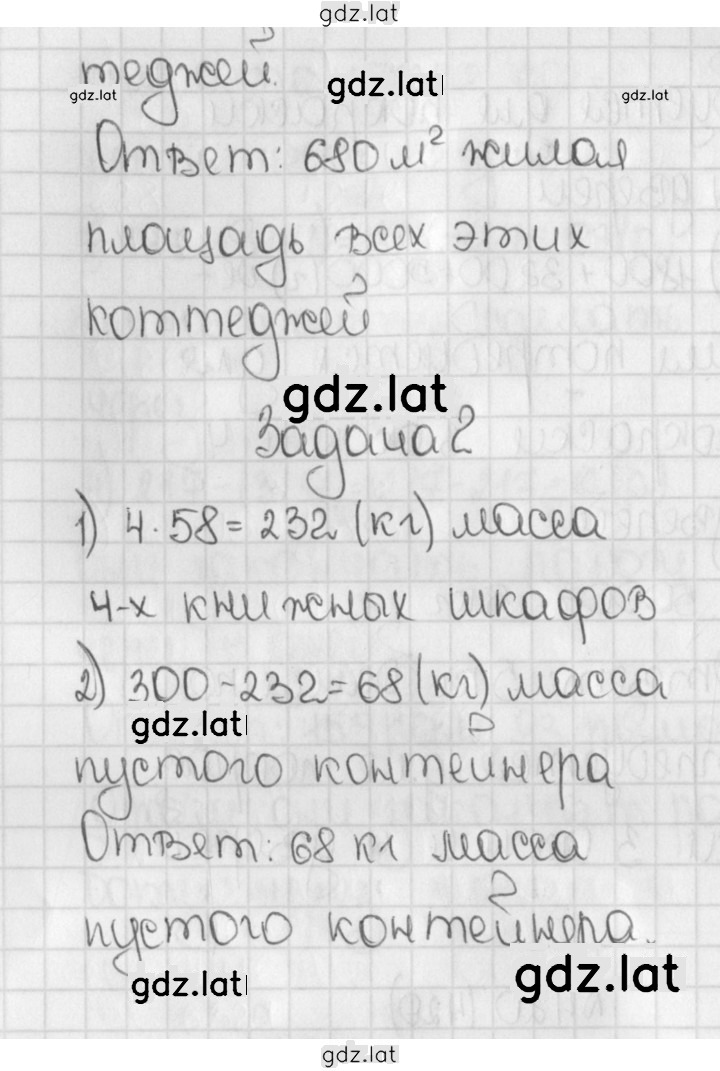 gdz.lat
теджей.
gdz.lat gdz.lat gdz.lat
Ответ: 680 м² жилая
площадь всех этих
коттеджей
gdz.lat
Задача 2
1) 4 · 58 = 232 (кг) масса
4-х книжных шкафов
2) 300 - 232 = 68 (кг) масса
gdz.lat
пустого контейнера
Ответ: 68 кг масса
пустого контейнера.
gdz.lat gdz.lat
gdz.lat